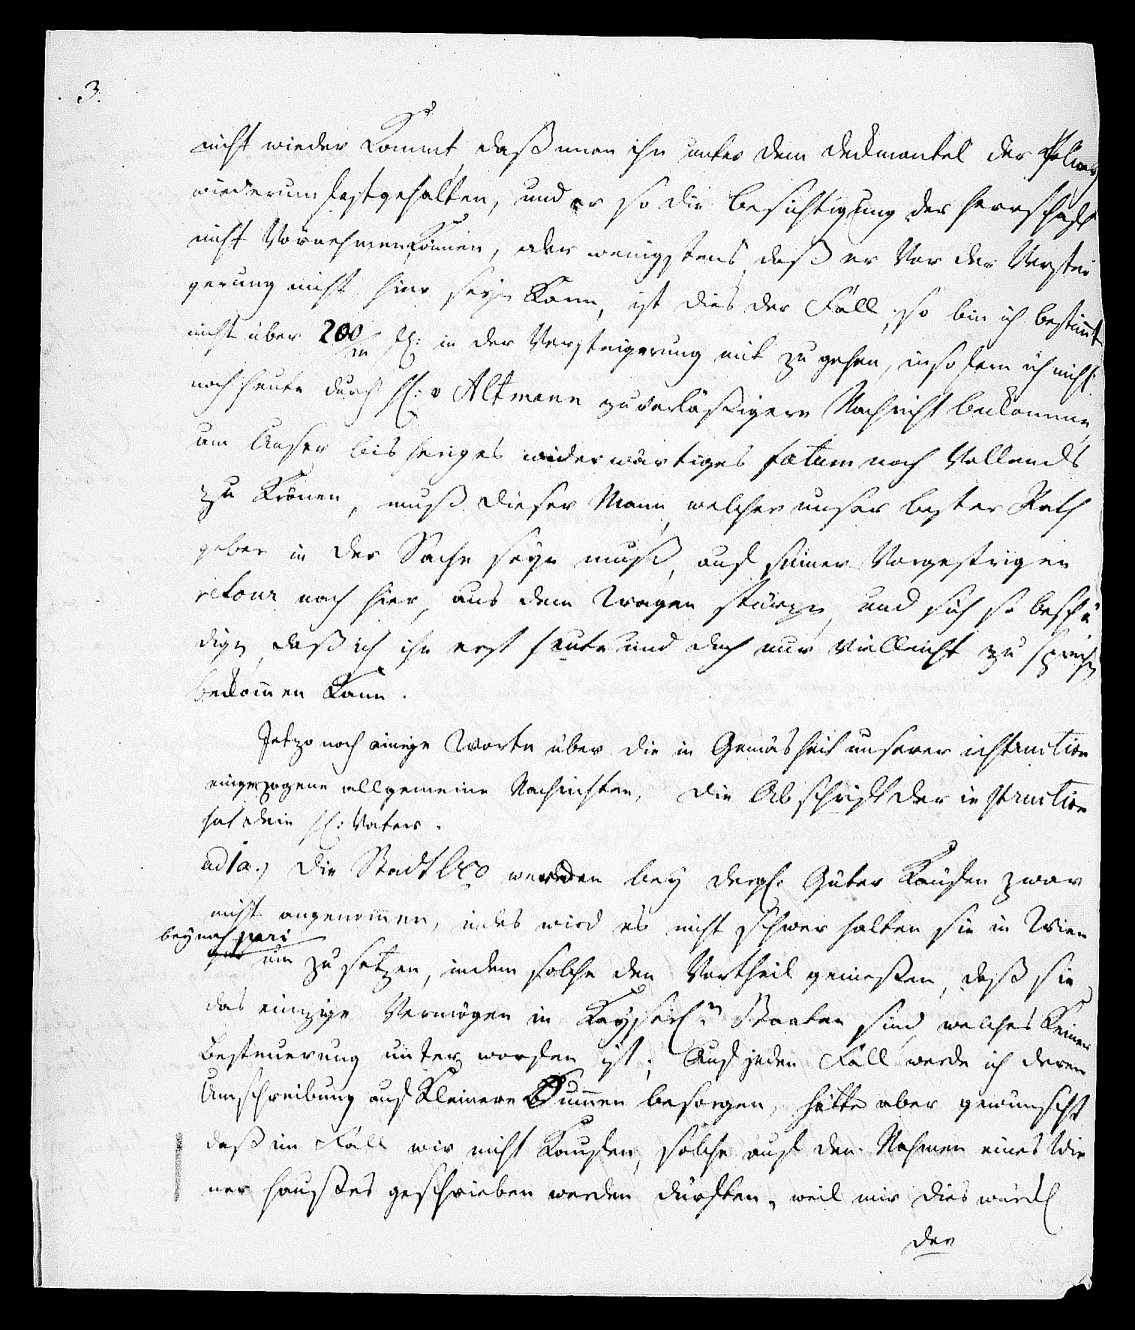 3.
nicht wieder kommt, daß man ihn unter dem deckmantel der Polizey
wiederum festgehalten, und er so die besichtigung der herrschaft
nicht Vornehmen können, oder wenigstens, daß er Vor der Verstei
gerung nicht hier seyn kann, ist dies der Fall, so bin ich bestimmt
nicht über 200/m fl: in der Versteigerung mit zu gehen, insofern ich nicht
noch heute durch H: v Altmann zuverläßigere Nachricht bekomme,
um Unser bisheriges widerwärtiges fatum noch Vollends
zu Krönen, muß dieser Mann, welcher unser bester Rath
geber in der Sache seyn muß, auf seiner Vorgestrigen
retour nach hier, aus dem Wagen stürzen, und sich so beschä
digen, daß ich ihn erst heute und doch nur vielleicht zu sprechen
bekommen kann.
Jetzo noch einige Worte über die in Gemäsheit unserer instruction
eingezogene allgemeine Nachrichten, die Abschrift der instruction
hat dein H: Vater.
ad 1a.) Die Stadt Bco werden bey dergl. Güter Käufen zwar
nicht angenommen, indes wird es nicht schwer halten sie in Wien
beynah pari
um zu setzen, indem solche den Vortheil genießen, daß sie
das einzige Vermögen in Kayserl.n Staaten sind, welches keiner
besteuerung unterworfen ist; Auf jeden Fall werde ich deren
Umschreibung auf Kleinere Summen besorgen, hätte aber gewünscht
daß im Fall wir nicht kaufen, solche auf den Nahmen eines Wie
ner haußes geschrieben werden dürften, weil mir dies würkl
der